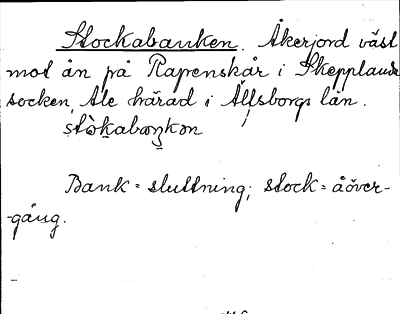 Stockabanken. Åkerjord väst
mot ån på Rapenskår i Skepplanda
socken, Ale härad i Älfsborgs län.
Bank = sluttning; stock = åöver-
-gång.